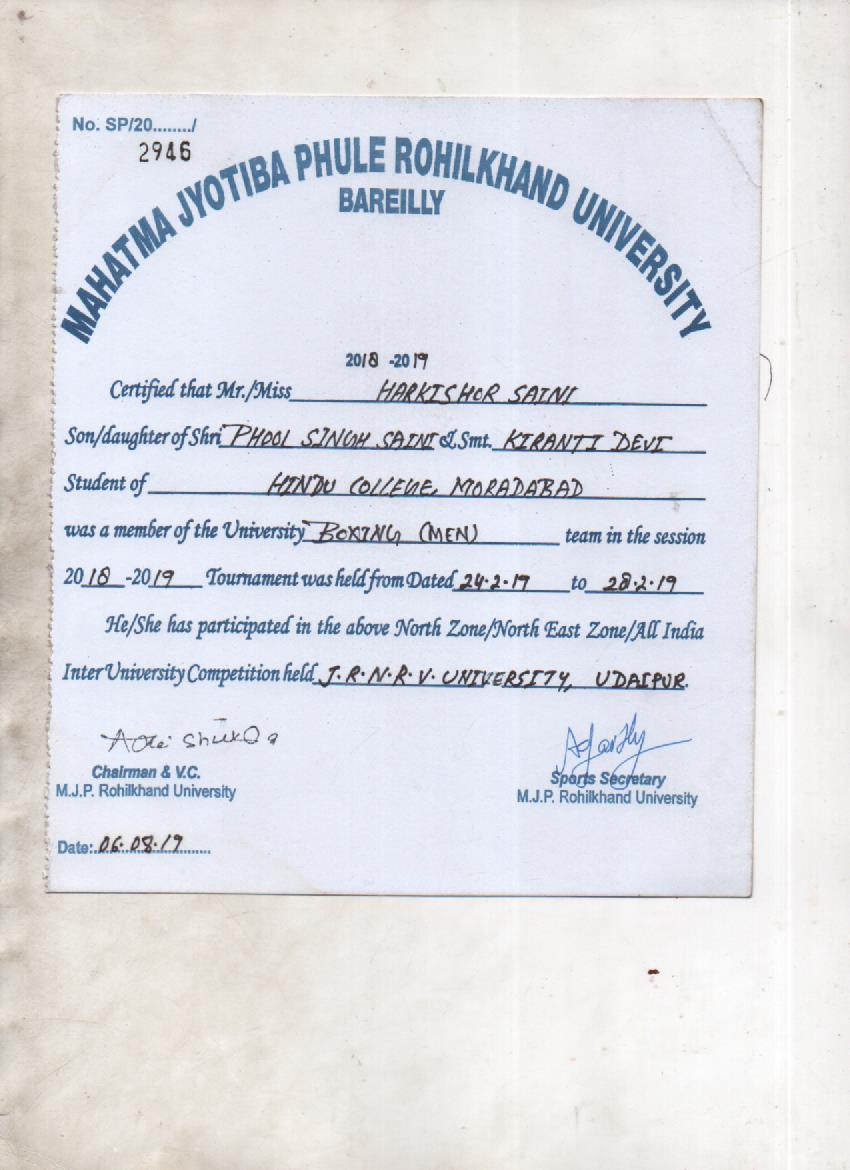 No. SP/20......../
2946
MAHATMA JYOTIBA PHULE ROHILKHAND UNIVERSITY
BAREILLY
2018 -2019
Certified that Mr./Miss HARKISHOR SAINI
Son/daughter of Shri PHOOL SINGH SAINI & Smt. KIRANTI DEVI
Student of HINDU COLLEGE, MORADABAD
was a member of the University BOXING (MEN) team in the session
2018 -2019 Tournament was held from Dated 24.2.19 to 28.2.19
He/She has participated in the above North Zone/North East Zone/All India
Inter University Competition held J.R.N.R.V. UNIVERSITY, UDAIPUR.
Shukla
Chairman & V.C.
M.J.P. Rohilkhand University
Sports Secretary
M.J.P. Rohilkhand University
Date:.06.08.19